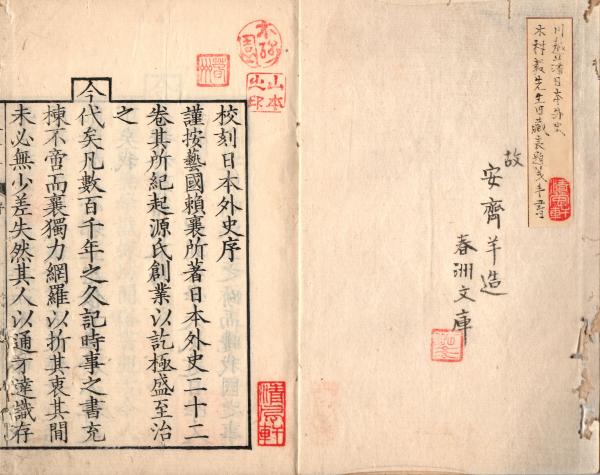 日本外史
先生
故
安齊羊造
春洲文庫
山本之印
校刻日本外史序
謹按藝國賴襄所著日本外史二十二
卷其所紀起源氏創業以訖極盛至治
之
今代矣凡數百千年之久記時事之書充
棟不啻而襄獨力網羅以折其衷其間
未必無少差失然其人以通方達識存